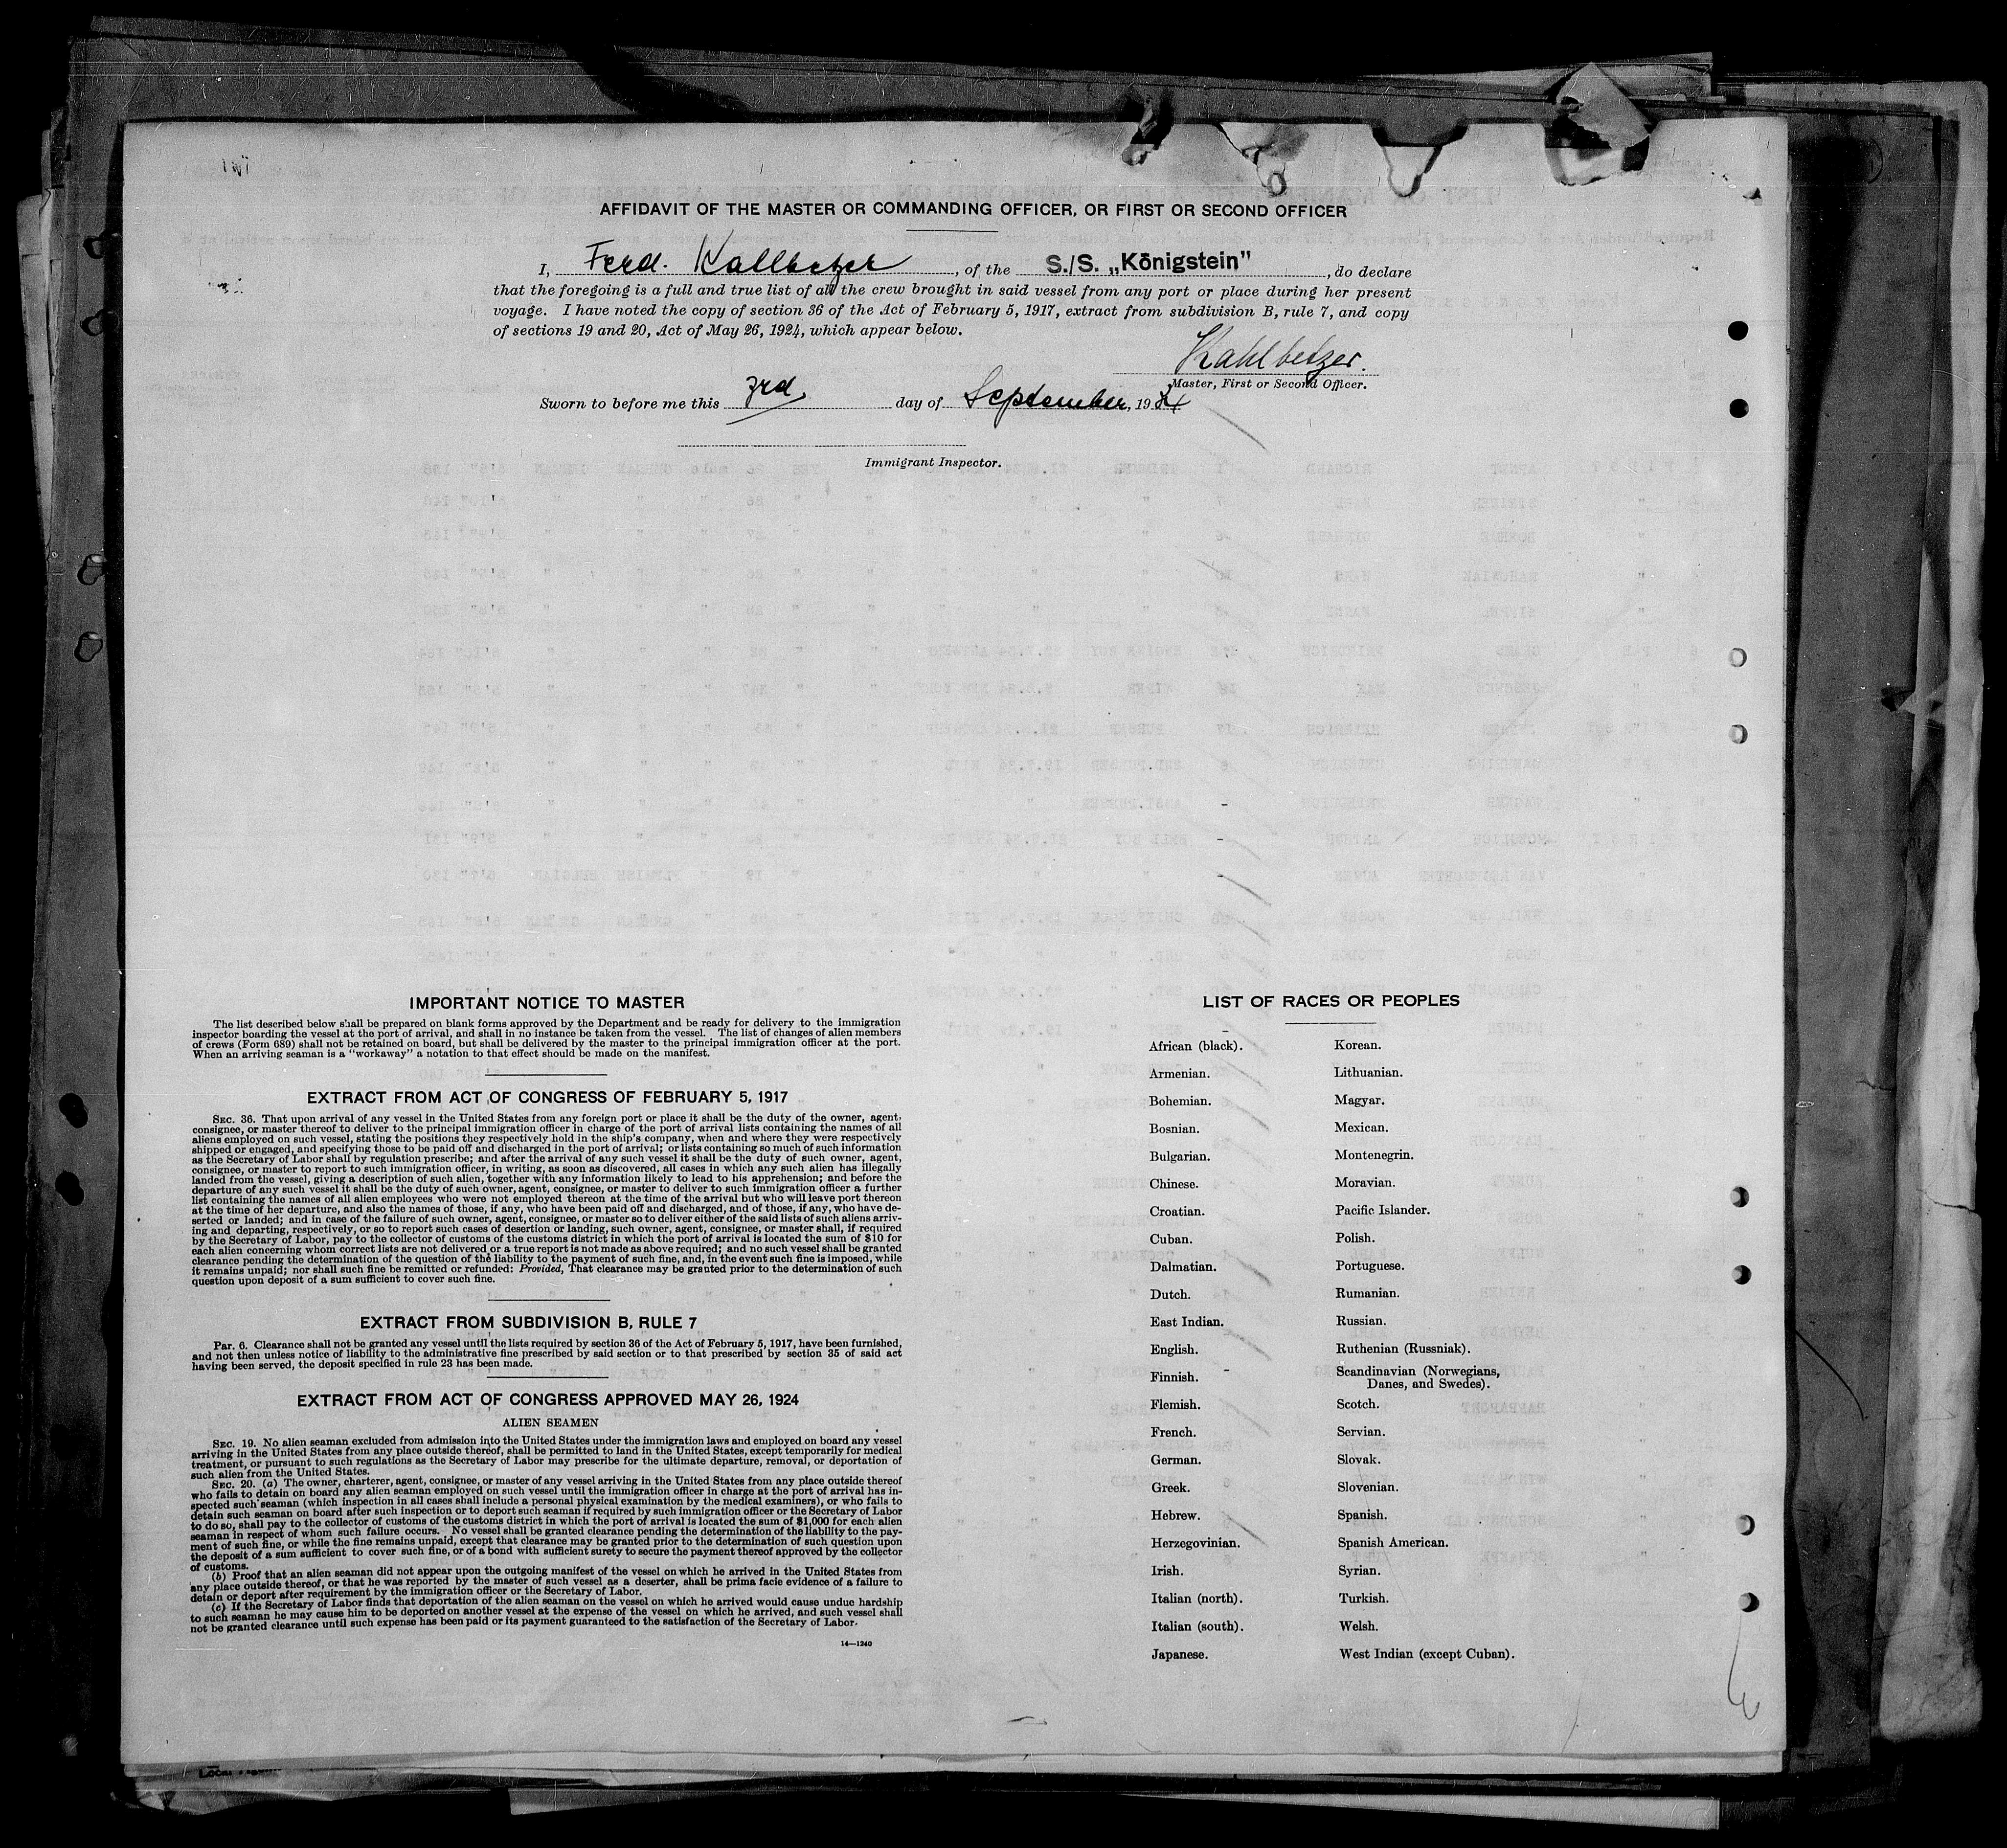 AFFIDAVIT OF THE MASTER OR COMMANDING OFFICER, OR FIRST OR SECOND OFFICER
I, Ferd. Kallbetzer, of the S./S. „Königstein”, do declare
that the foregoing is a full and true list of all the crew brought in said vessel from any port or place during her present
voyage. I have noted the copy of section 36 of the Act of February 5, 1917, extract from subdivision B, rule 7, and copy
of sections 19 and 20, Act of May 26, 1924, which appear below.
Kahlbetzer.
Master, First or Second Officer.
Sworn to before me this 3rd day of September, 1934
Immigrant Inspector.
IMPORTANT NOTICE TO MASTER
The list described below shall be prepared on blank forms approved by the Department and be ready for delivery to the immigration
inspector boarding the vessel at the port of arrival, and shall in no instance be taken from the vessel. The list of changes of alien members
of crews (Form 689) shall not be retained on board, but shall be delivered by the master to the principal immigration officer at the port.
When an arriving seaman is a "workaway" a notation to that effect should be made on the manifest.
EXTRACT FROM ACT OF CONGRESS OF FEBRUARY 5, 1917
SEC. 36. That upon arrival of any vessel in the United States from any foreign port or place it shall be the duty of the owner, agent,
consignee, or master thereof to deliver to the principal immigration officer in charge of the port of arrival lists containing the names of all
aliens employed on such vessel, stating the positions they respectively hold in the ship's company, when and where they were respectively
shipped or engaged, and specifying those to be paid off and discharged in the port of arrival; or lists containing so much of such information
as the Secretary of Labor shall by regulation prescribe; and after the arrival of any such vessel it shall be the duty of such owner, agent,
consignee, or master to report to such immigration officer, in writing, as soon as discovered, all cases in which any such alien has illegally
landed from the vessel, giving a description of such alien, together with any information likely to lead to his apprehension; and before the
departure of any such vessel it shall be the duty of such owner, agent, consignee, or master to deliver to such immigration officer a further
list containing the names of all alien employees who were not employed thereon at the time of the arrival but who will leave port thereon
at the time of her departure, and also the names of those, if any, who have been paid off and discharged, and of those, if any, who have de-
serted or landed; and in case of the failure of such owner, agent, consignee, or master so to deliver either of the said lists of such aliens arriv-
ing and departing, respectively, or so to report such cases of desertion or landing, such owner, agent, consignee, or master shall, if required
by the Secretary of Labor, pay to the collector of customs of the customs district in which the port of arrival is located the sum of $10 for
each alien concerning whom correct lists are not delivered or a true report is not made as above required; and no such vessel shall be granted
clearance pending the determination of the question of the liability to the payment of such fine, and, in the event such fine is imposed, while
it remains unpaid; nor shall such fine be remitted or refunded: Provided, That clearance may be granted prior to the determination of such
question upon deposit of a sum sufficient to cover such fine.
EXTRACT FROM SUBDIVISION B, RULE 7
Par. 6. Clearance shall not be granted any vessel until the lists required by section 36 of the Act of February 5, 1917, have been furnished,
and not then unless notice of liability to the administrative fine prescribed by said section or to that prescribed by section 35 of said act
having been served, the deposit specified in rule 23 has been made.
EXTRACT FROM ACT OF CONGRESS APPROVED MAY 26, 1924
ALIEN SEAMEN
SEC. 19. No alien seaman excluded from admission into the United States under the immigration laws and employed on board any vessel
arriving in the United States from any place outside thereof, shall be permitted to land in the United States, except temporarily for medical
treatment, or pursuant to such regulations as the Secretary of Labor may prescribe for the ultimate departure, removal, or deportation of
such alien from the United States.
SEC. 20. (a) The owner, charterer, agent, consignee, or master of any vessel arriving in the United States from any place outside thereof
who fails to detain on board any alien seaman employed on such vessel until the immigration officer in charge at the port of arrival has in-
spected such seaman (which inspection in all cases shall include a personal physical examination by the medical examiners), or who fails to
detain such seaman on board after such inspection or to deport such seaman if required by such immigration officer or the Secretary of Labor
to do so, shall pay to the collector of customs of the customs district in which the port of arrival is located the sum of $1,000 for each alien
seaman in respect of whom such failure occurs. No vessel shall be granted clearance pending the determination of the liability to the pay-
ment of such fine, or while the fine remains unpaid, except that clearance may be granted prior to the determination of such question upon
the deposit of a sum sufficient to cover such fine, or of a bond with sufficient surety to secure the payment thereof approved by the collector
of customs.
(b) Proof that an alien seaman did not appear upon the outgoing manifest of the vessel on which he arrived in the United States from
any place outside thereof, or that he was reported by the master of such vessel as a deserter, shall be prima facie evidence of a failure to
detain or deport after requirement by the immigration officer or the Secretary of Labor.
(c) If the Secretary of Labor finds that deportation of the alien seaman on the vessel on which he arrived would cause undue hardship
to such seaman he may cause him to be deported on another vessel at the expense of the vessel on which he arrived, and such vessel shall
not be granted clearance until such expense has been paid or its payment guaranteed to the satisfaction of the Secretary of Labor.
14—1240
LIST OF RACES OR PEOPLES
African (black).
Armenian.
Bohemian.
Bosnian.
Bulgarian.
Chinese.
Croatian.
Cuban.
Dalmatian.
Dutch.
East Indian.
English.
Finnish.
Flemish.
French.
German.
Greek.
Hebrew.
Herzegovinian.
Irish.
Italian (north).
Italian (south).
Japanese.
Korean.
Lithuanian.
Magyar.
Mexican.
Montenegrin.
Moravian.
Pacific Islander.
Polish.
Portuguese.
Rumanian.
Russian.
Ruthenian (Russniak).
Scandinavian (Norwegians,
Danes, and Swedes).
Scotch.
Servian.
Slovak.
Slovenian.
Spanish.
Spanish American.
Syrian.
Turkish.
Welsh.
West Indian (except Cuban).